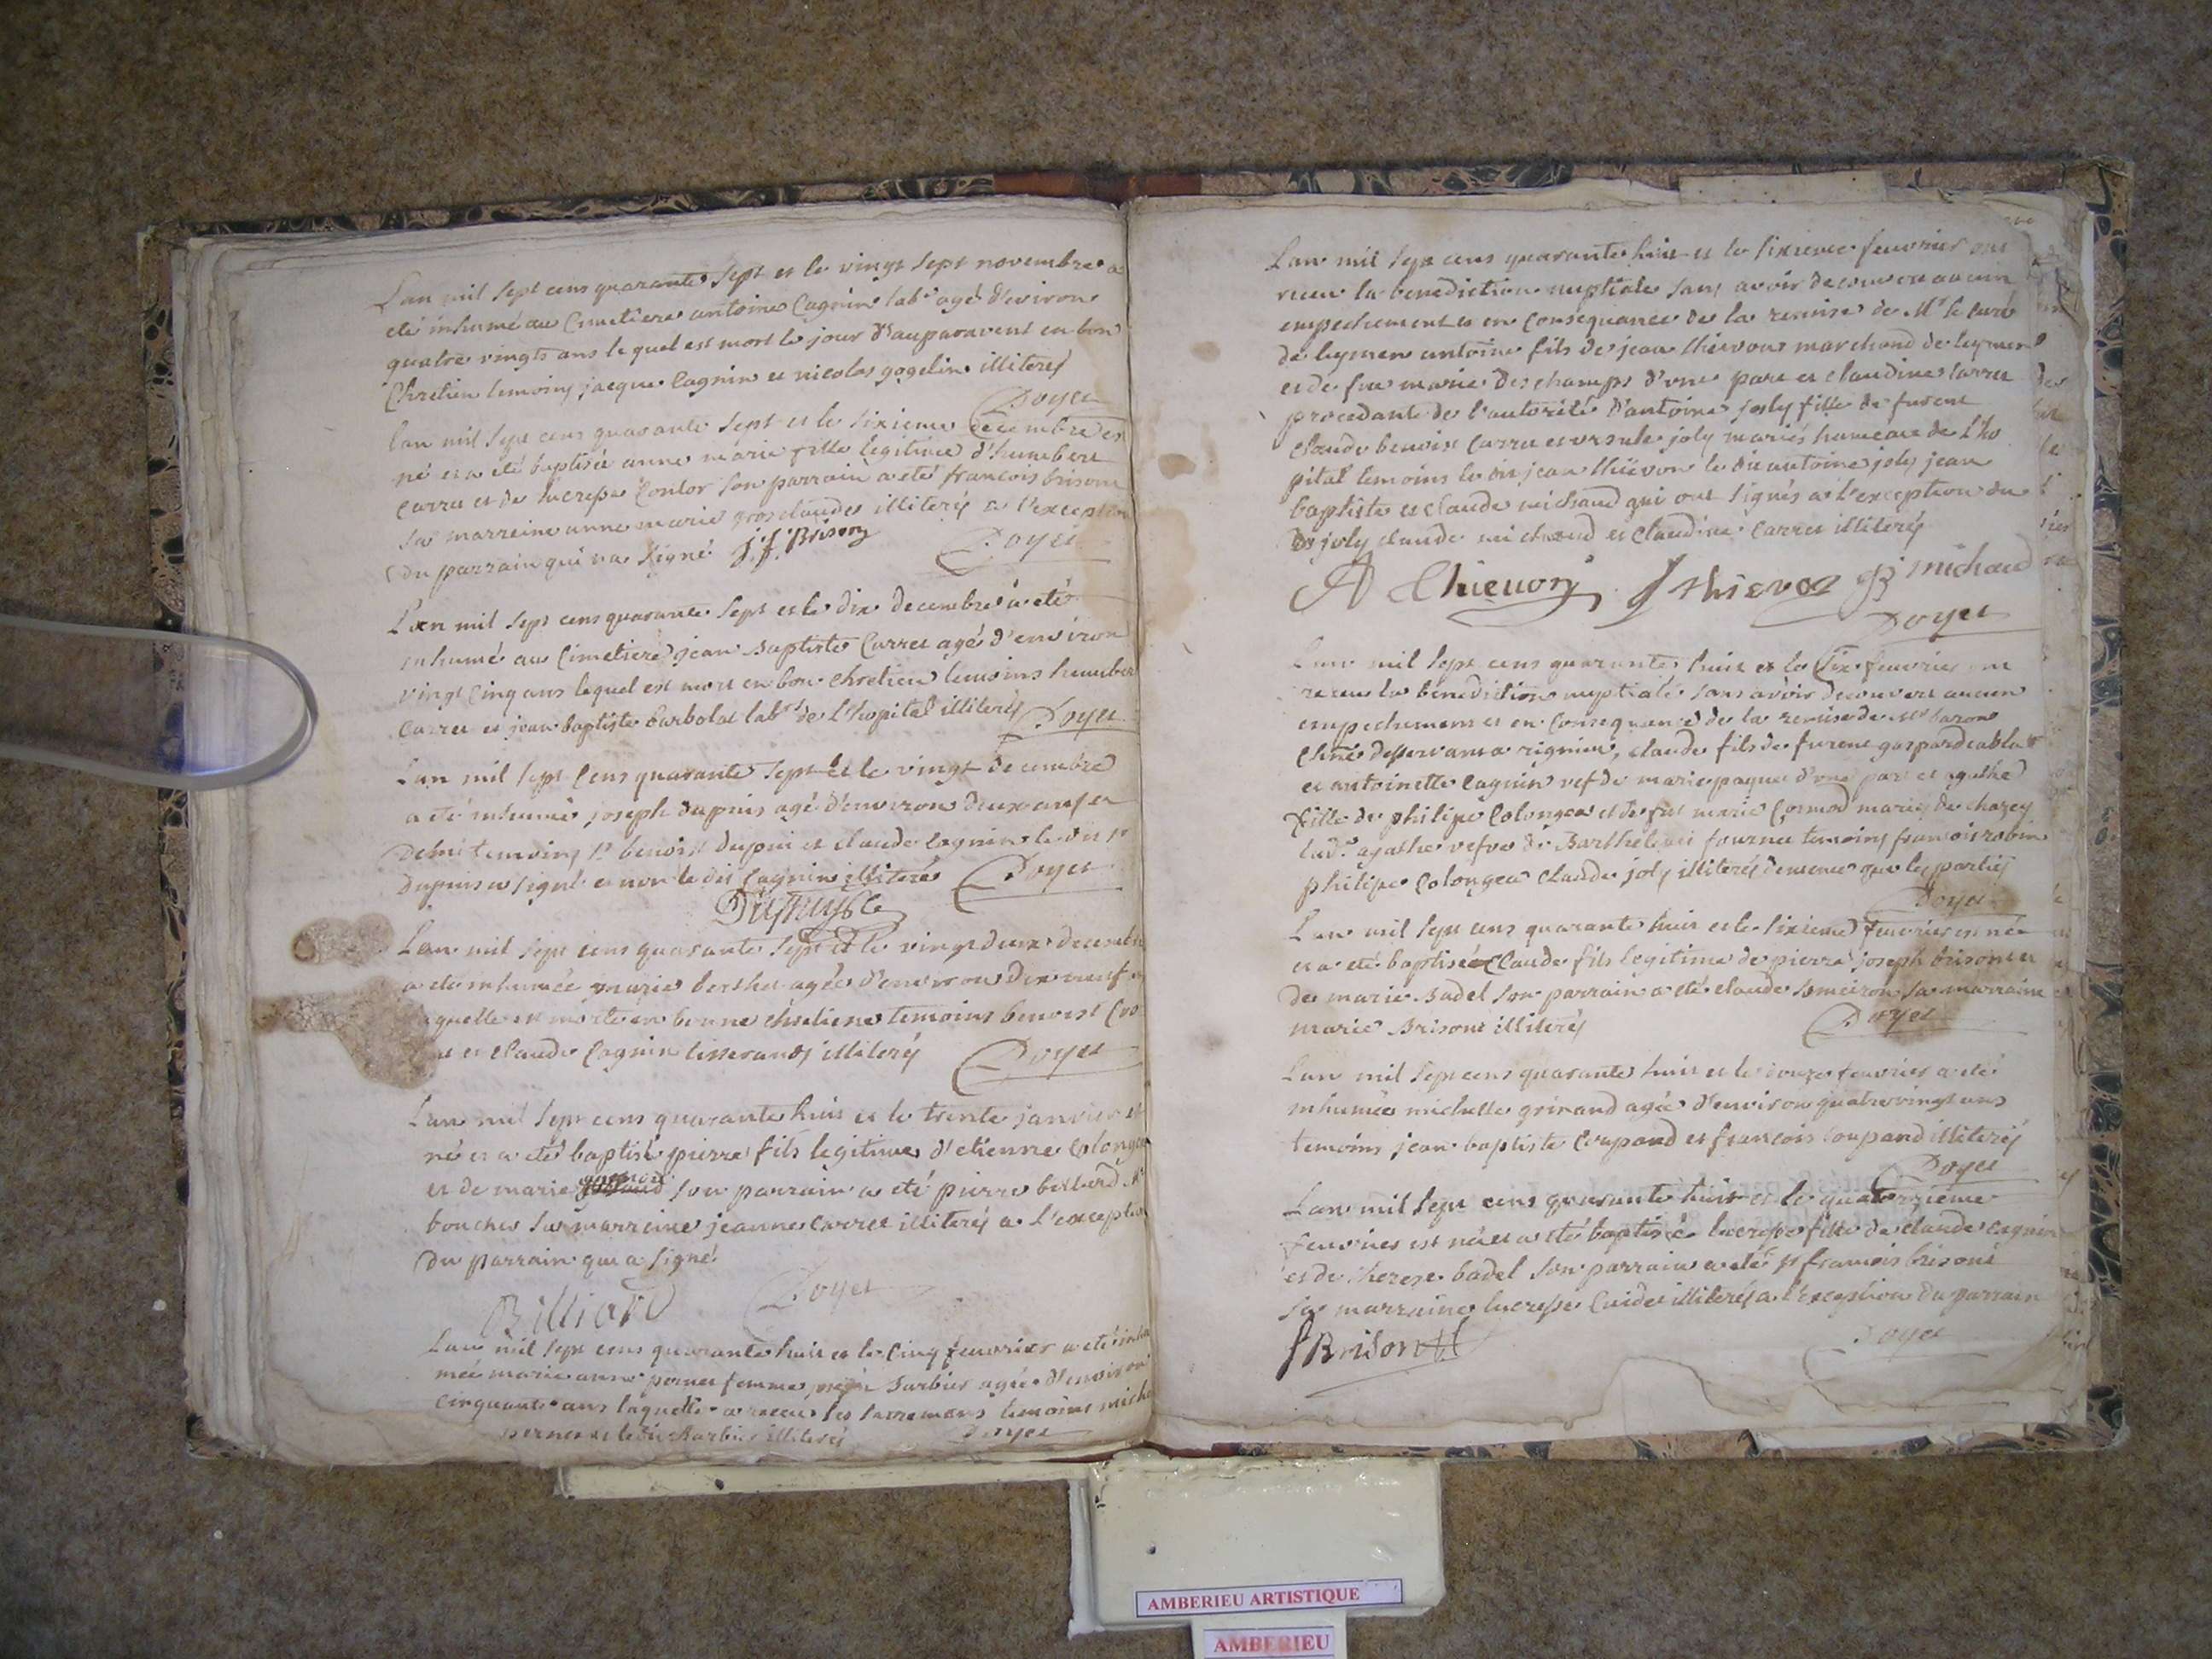 Lan mil sept cens quarante sept et le vingt sept novembre a
eté inhumé au Cimetiere antoine Cagnin labr agé d'eviron
quatre vingts ans le quel est mort le jour d'auparavent en bon
Chretien temoins jacque Cagnin et nicolas gogelin illiterés
Doyet
lan mil sept cens quarante sept et le sixieme decembre est
né et a été baptisée anne marie fille legitime d'humbert
carret et de lucresse son parrain a eté francois brison
sa marreine anne marie grosclaude illiterés a l'exception
du parrain qui na signé j.f. Brison Doyet
Lan mil sept cens quarante sept et le dix decembre a eté
inhumé au Cimetiere jean Baptiste Carret agé d'environ
vingt cinq ans lequel est mort en bon chretien temoins humbert
Carret et jean baptiste barbolat labrs de L'hopital illiterés Doyet
Lan mil sept Cens quarante sept et le vingt decembre
a eté inhumé joseph dupuis agé d'environ deux ans et
demi temoins sr benoist dupui et claude Cagnin le dit sr
Dupuis a signé et non le dit Cagnin illiteré Doyet
Lan mil sept cens quarante sept et le vingt deux decembre
a eté inhumée marie berthet agée d'environ dix neuf
aquelle est morte en bonne chretiene temoins benoist
et claude Cagnin tisserands illiterés Doyet
Lan mil sept cens quarante huit et le trente janvier est
né et a eté baptisé pierre fils legitime d'etienne Colongea
et de marie son parrain a eté pierre billiard
boucher sa marreine jeanne Carret illiterés a L'exception
du parrain qui a signé
Billiard Doyet
Lan mil sept cens quarante huit et le cinq feuvrier a eté inhu
meé marie anne pernet femme Barbier agée d'environ
cinquante ans laquelle a receu les sacremens temoins miche
pernet et le dit Barbier illiterés Doyet
Lan mil sept cens quarante huit et le sixieme feuvrier ont
receu la benediction nuptiale sans avoir decouvert aucun
empechement et en consequance de la remise de Mr le curé
de leymen antoine fils de jean thievon marchand de leymen
et de fue marie deschamps d'une part et claudine Carret
procedante de l'autorité d'antoine joly fille de furent
Claude benoist Carret et ursule joly mariés de L'ho
pital temoins le dit jean thievon le dit antoine joly jean
baptiste et claude michaud qui ont signés a l'exception du
dt joly claude michaud et Claudine Carret illiterés
A Thievon J thievon JB michaud
Doyet
Lan mil sept cens quarante huit et le six feuvrier ont
receu la benediction nuptiale sans avoir decouvert aucun
empechement et en consequance de la remise de Mr baron
desservant a rignieu, claude fils de furent gaspard
et antoinette Cagnin vef de marie paquet d'une part et agathe
fille de philipe Colongea et de fue marie mariés de chazey
lad.e agathe vefve de Barthelemi fournet temoins francois robin
philipe Colongea claude joly illiterés dememe que les parties
Doyet
Lan mil sept cens quarante huit et le sixieme feuvrier est né
et a eté baptisé Claude fils legitime de pierre joseph brison et
de marie Badel son parrain a eté claude someiron sa marraine
marie Brison illiterés Doyet
Lan mil sept cens quarante huit et le douze feuvrier a eté
inhumée michelle grinand agée d'environ quatre vingt ans
temoins jean baptiste Coupand et francois Coupand illiterés
Doyet
Lan mil sept cens quarante huit et le quatorzieme
feuvrier est née et a eté baptisée lucresse fille de claude cagnin
et de therese badel son parrain a eté sr francois brison
sa marraine lucresse Cuidet illiterés a l'Exception du parrain
f Brison Doyet
AMBERIEU ARTISTIQUE
AMBERIEU